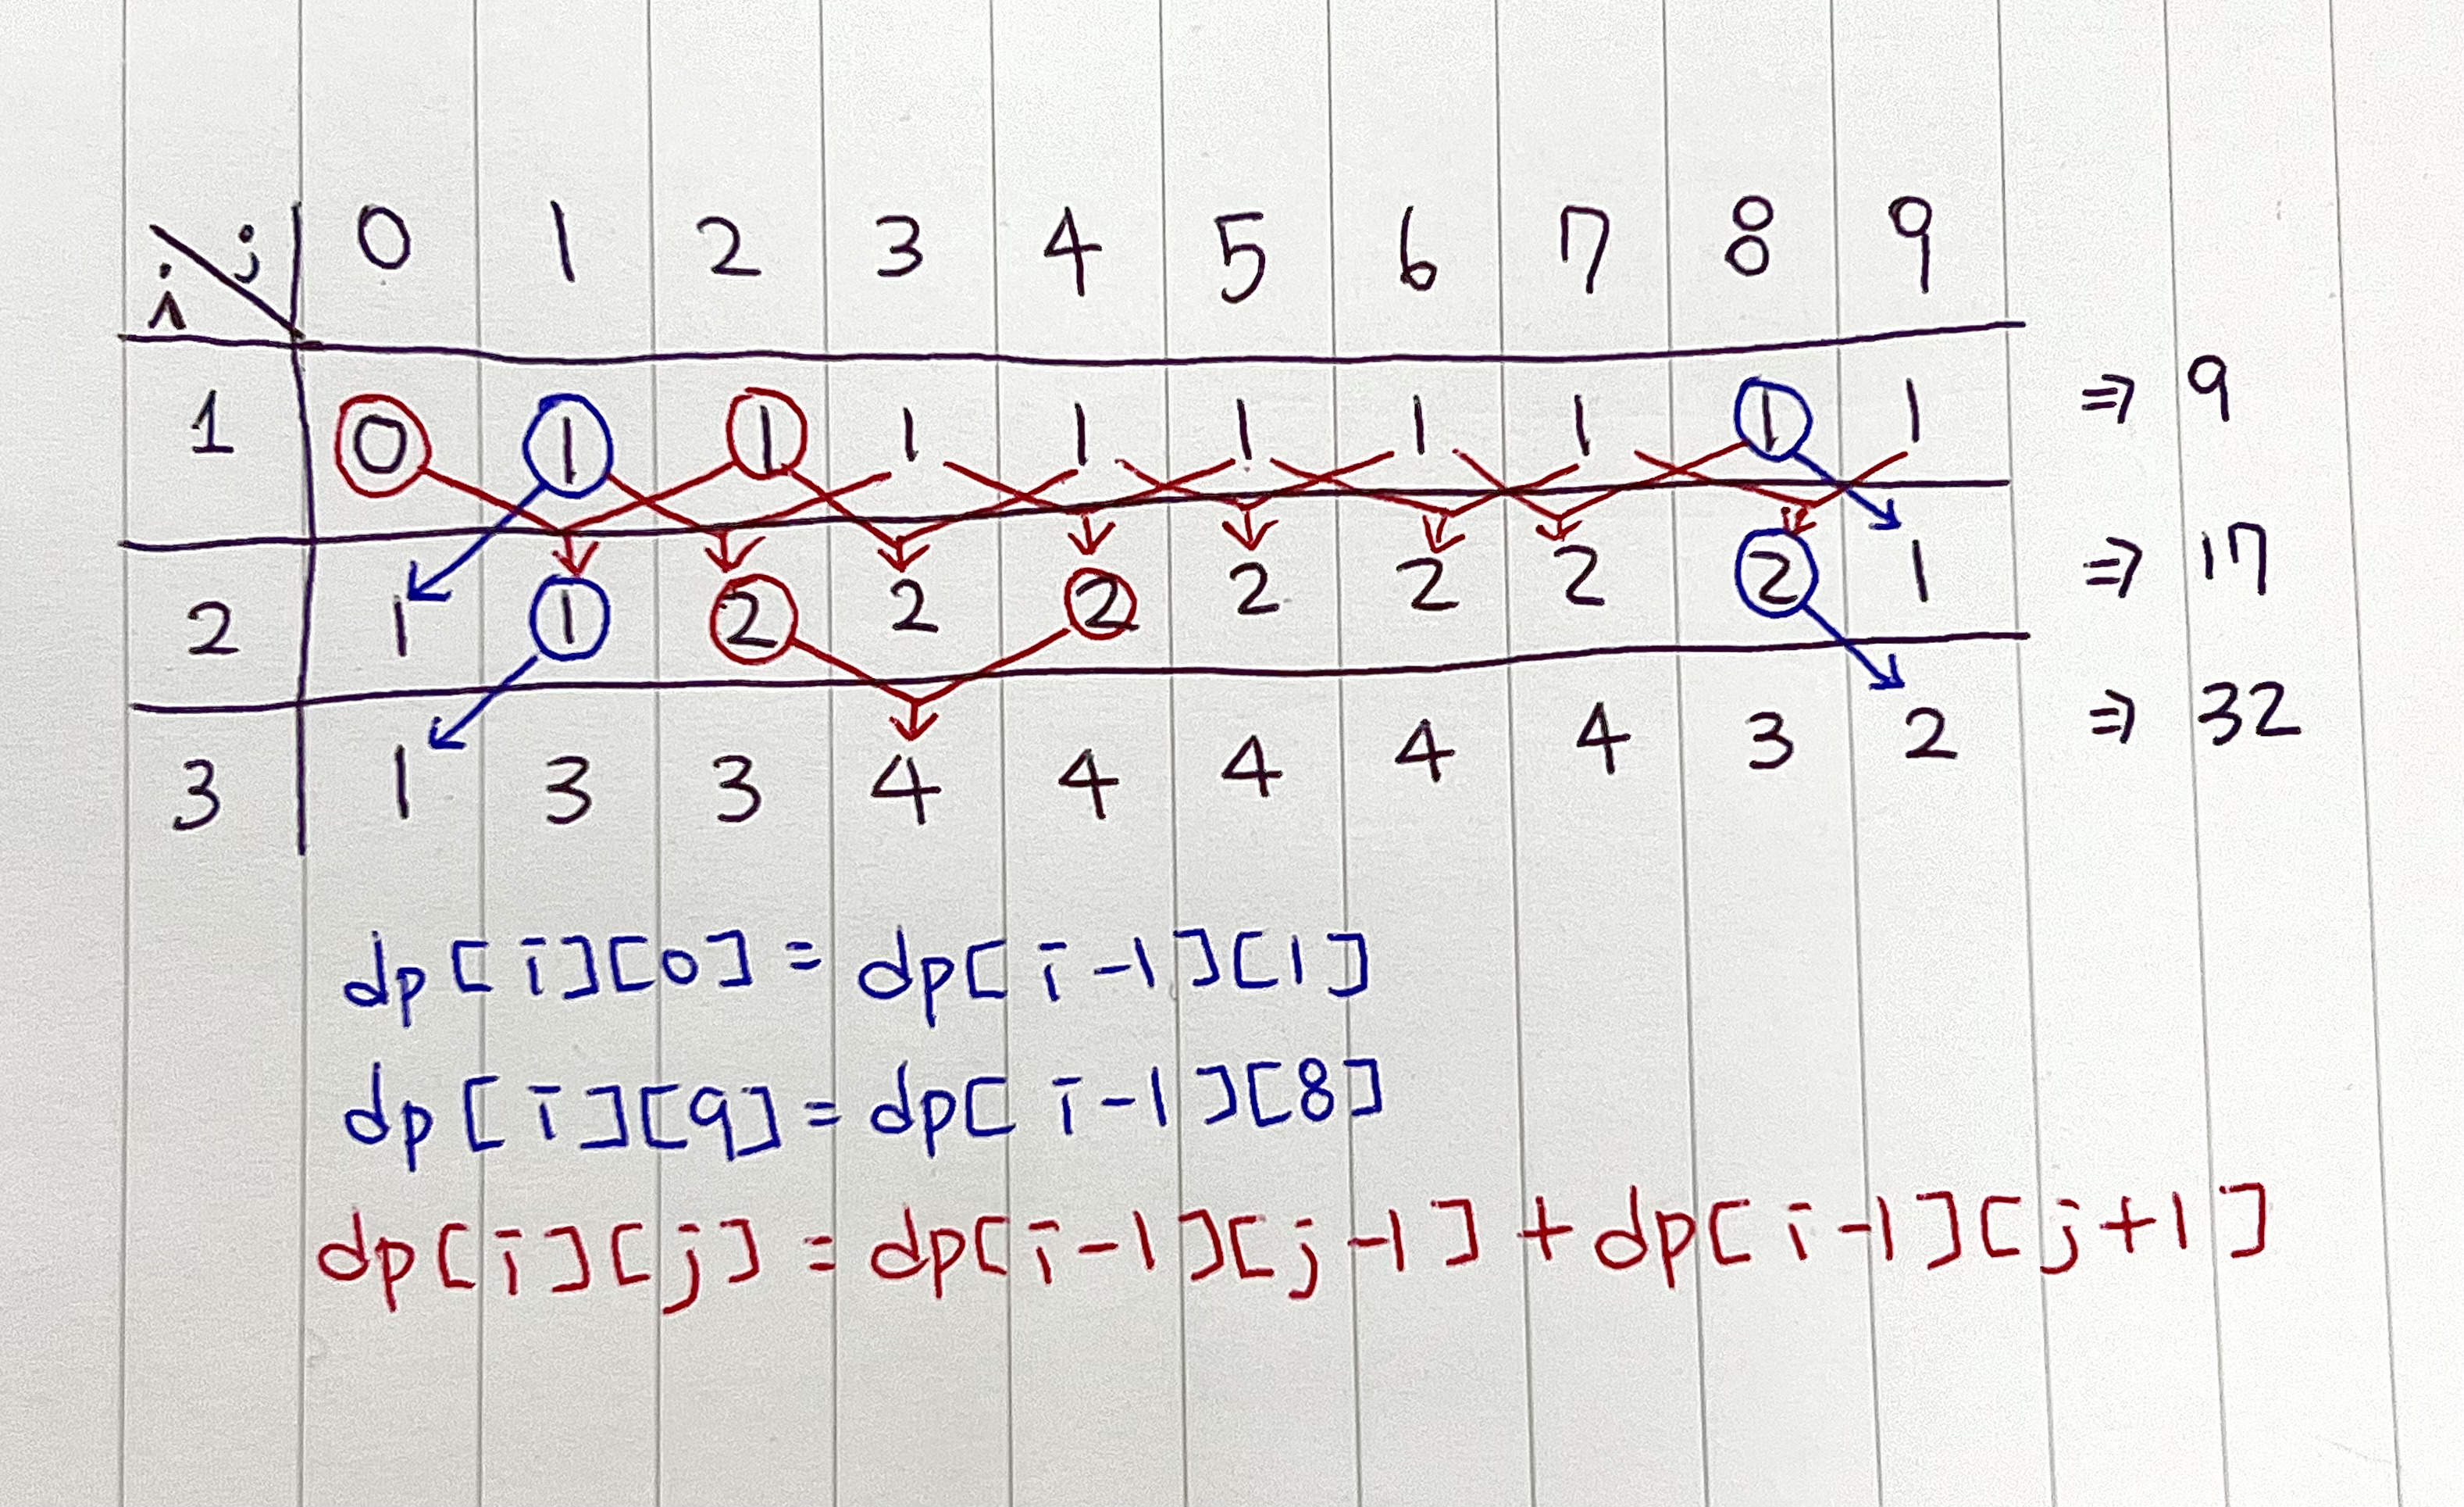 i j 0 1 2 3 4 5 6 7 8 9
1 0 1 1 1 1 1 1 1 1 1 ⇒ 9
2 1 1 2 2 2 2 2 2 2 1 ⇒ 17
3 1 3 3 4 4 4 4 4 3 2 ⇒ 32
dp[i][0] = dp[i-1][1]
dp[i][9] = dp[i-1][8]
dp[i][j] = dp[i-1][j-1] + dp[i-1][j+1]